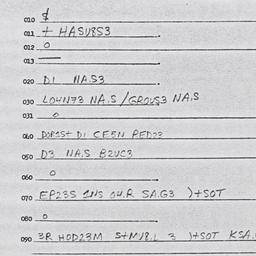 010 $
011 + HASU8S3
012 0
013 —
020 D1 NA.S3
030 LO4N73 NA.S / GROUS3 NA.S
031 0
040 DOP1S+ D1 CE5N PED23
050 D3 NA.S B2UC3
060 0
070 EP23S 2NS 04.R SA.G3 )+SOT
080 0
090 3R HOD23M S+M18.L 3 )+SOT KSA.